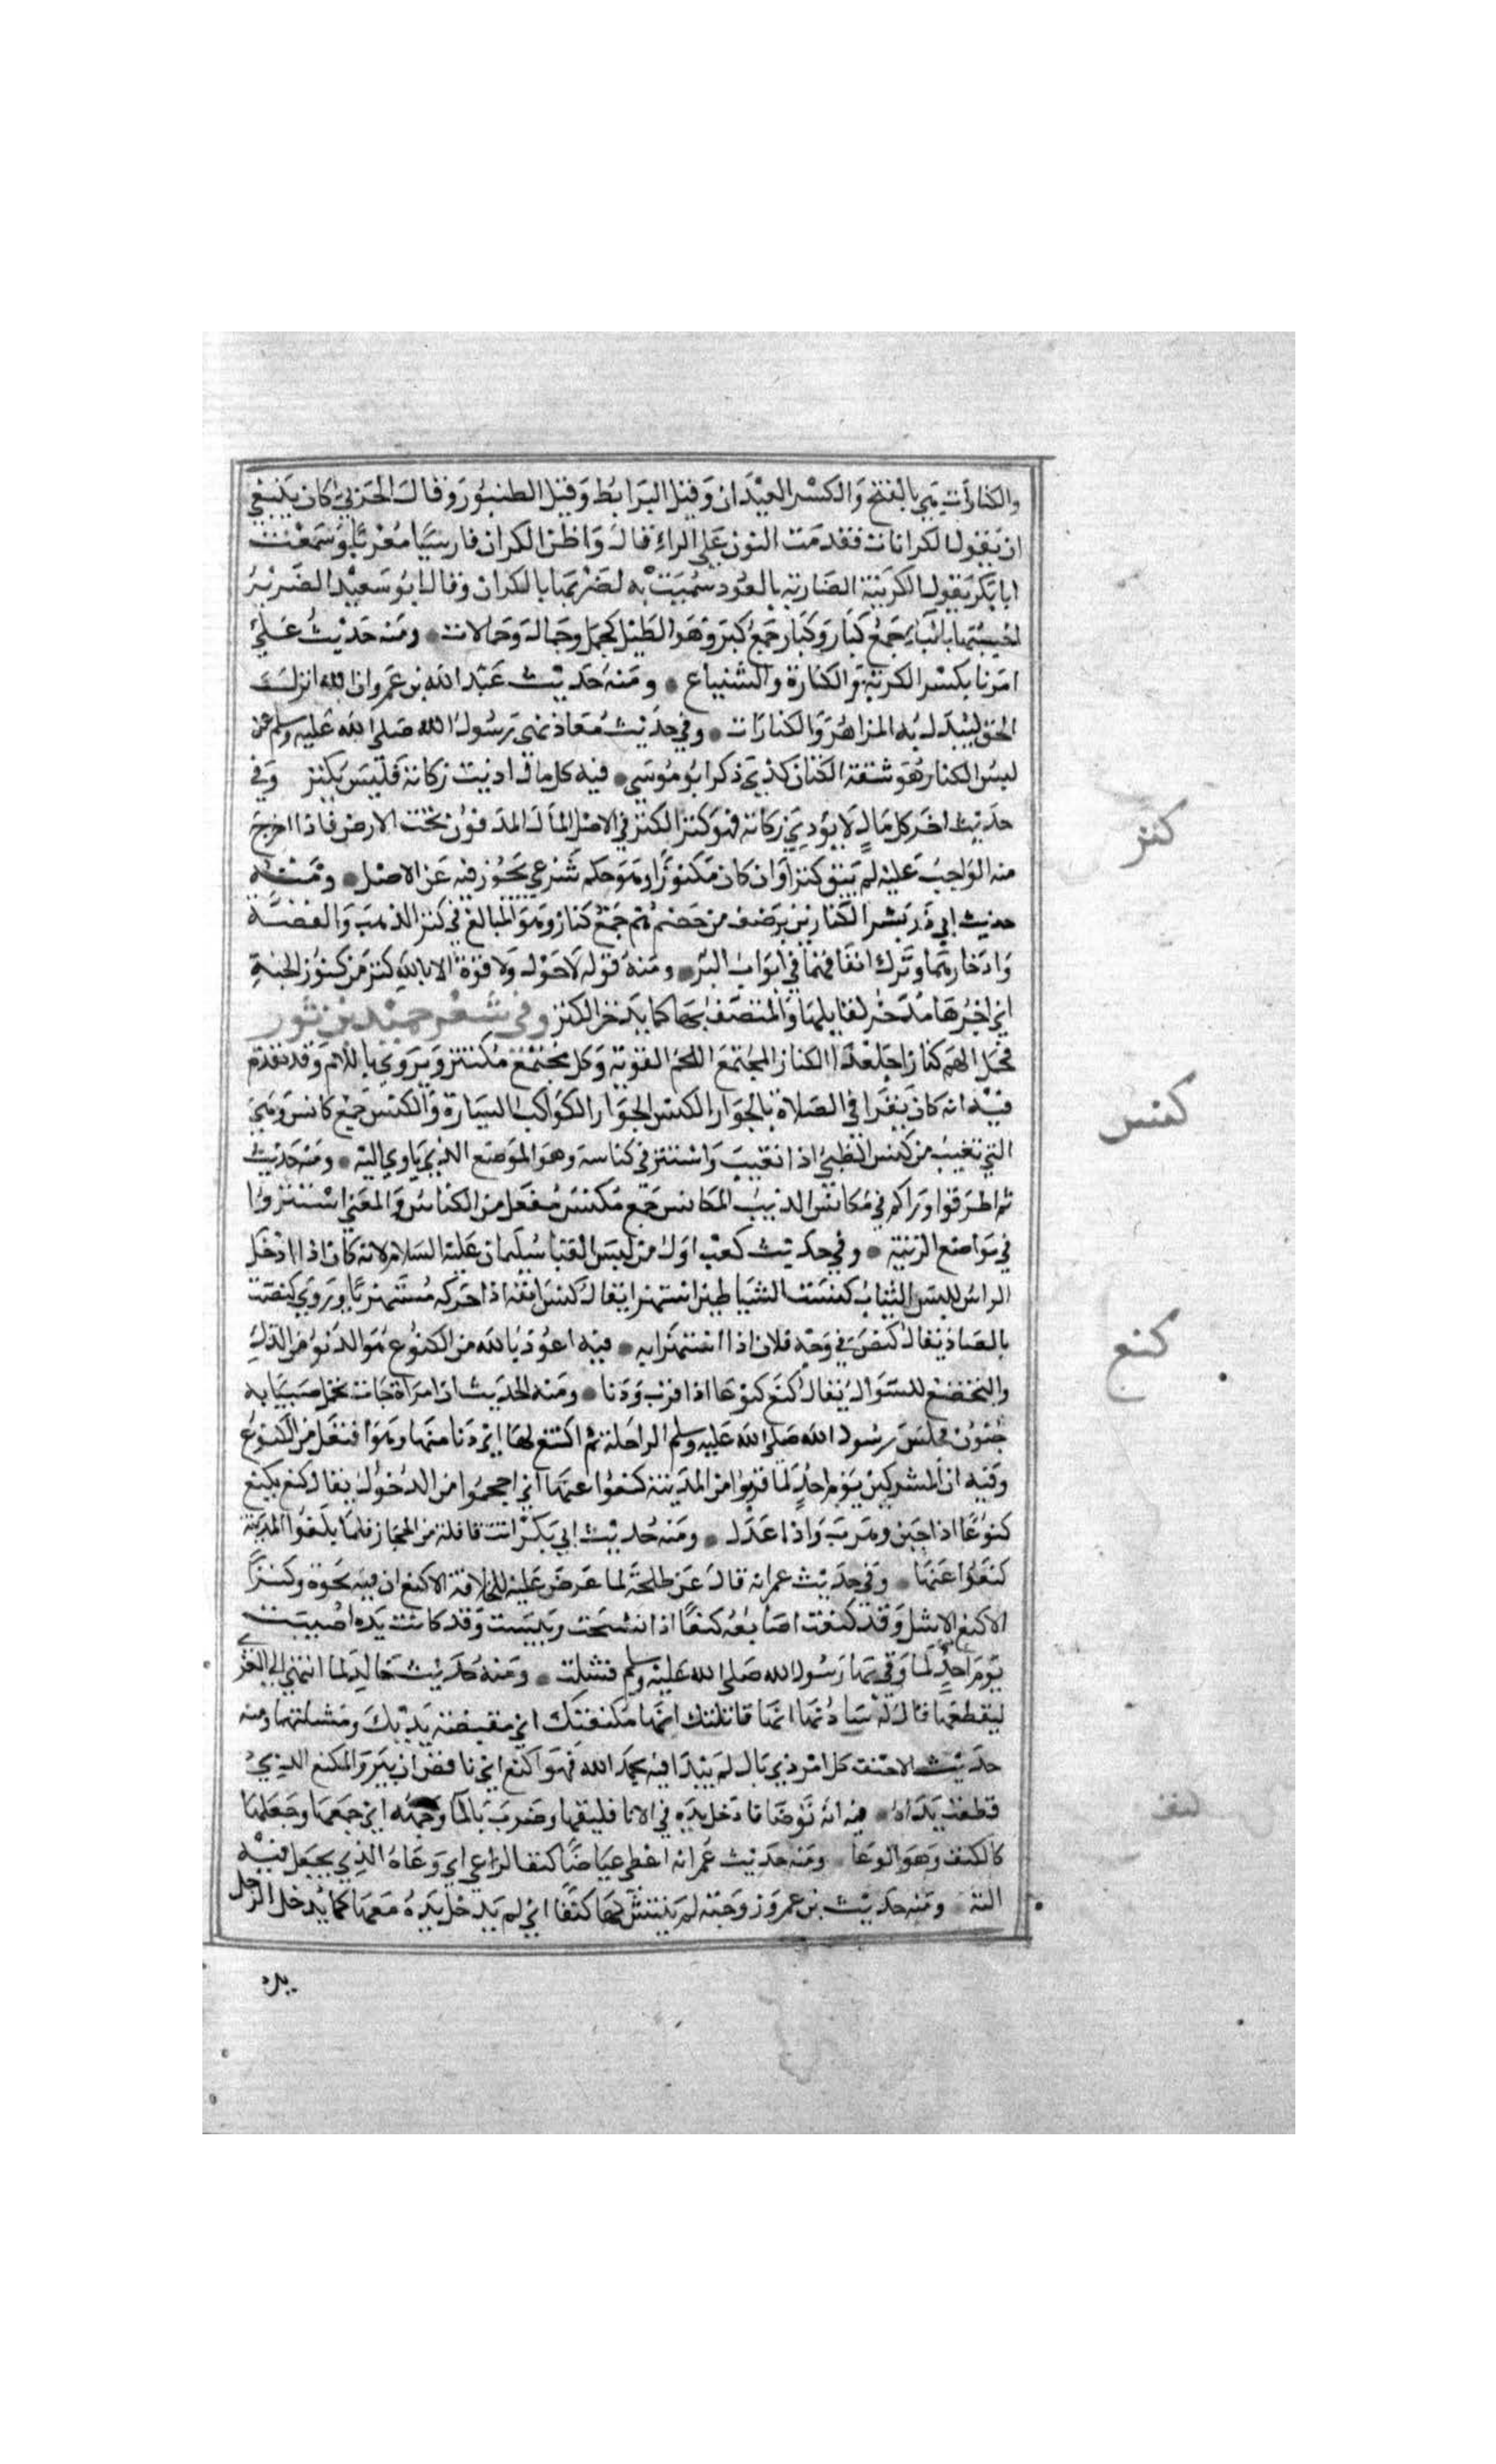 والكنارات هي بالفتح والكسر العيدان وقيل البرابط وقيل الطنبور وقال الحربي كان ينبغي
ان يقول الكرانات فقدمت النون على الراء قال واظن الكران فارسيا معربا وسمعت
ابا بكر يقول الكرينة الضاربة بالعود سميت به لضربها بالكران وقال ابو سعيد الضرير
احسبها بالباء جمع كبار وكبار جمع كبر وهو الطبل كجمل وجمال وجمالات ومنه حديث علي
امرنا بكسر الكوبة والكنارة والشياع ومنه حديث عبد الله بن عمرو ان الله انزل
الحق ليبدل به المزاهر والكنارات وفي حديث معاذ نهى رسول الله صلى الله عليه وسلم عن
لبس الكنار هو شقة الكتان كذى ذكرا بو موسي فيه كل مال اديت زكاته فليس بكنز وفي
حديث اخر كل مال لا يؤدي زكاته فهو كنز الكنز في الاصل المال المدفون تحت الارض فاذا اخرج
منه الواجب عليه لم يبق كنزا وان كان مكنوزا وهو حكم شرعي تجوز فيه عن الاصل ومنه
حديث ابي ذر بشر الكنازين برضف من جهنم هم جمع كناز وهو المبالغ في كنز الذهب والفضة
وادخارهما وترك انفاقهما في ابواب البر ومنه قوله لا حول ولا قوة الا بالله كنز من كنوز الجنة
اي اجرها مدخر لقايلها والمتصف بها كما يدخر الكنز وفي شعر حميد بن ثور
فحمل الهم كنازا جلعدا الكناز المجتمع اللحم القوية وكل مجتمع مكتنز ويروي باللام وقد تقدم
فيه انه كان يقرا في الصلاة بالجوار الكنس الجوار الكواكب السيارة والكنس جمع كانس وهي
التي تغيب من كنس الظبي اذا تغيب واستتر في كناسه وهو الموضع الذي ياوي اليه ومنه حديث
ثم اطرقوا وراكم في مكانس الذيب المكانس جمع مكنس مفعل من الكناس والمعنى استتروا
في مواضع الريبة وفي حديث كعب اول من لبس القبا سليمان عليه السلام لانه كان اذا ادخل
الراس للبس الثياب كنست الشياطين استهزا يقال كنس انفه اذا حركه مستهزيا ويروي كنصت
بالصاد يقال كنص في وجه فلان اذا استهزا به فيه اعوذ بالله من الكنوع هو الدنو من الذل
والتخضع للسوال يقال كنع كنوعا اذا قرب ودنا ومنه الحديث ان امراة جات تحمل صبيا به
جنون فحبس رسول الله صلى الله عليه وسلم الراحلة ثم اكتنع لها اي دنا منها وهو افتعل من الكنوع
وفيه ان المشركين يوم احد لما قربوا من المدينة كنعوا عنها اي احجموا من الدخول يقال كنع يكنع
كنوعا اذا جبن وهرب واذا عدل ومنه حديث ابي بكر اتت قافلة من الحجاز فلما بلغوا المدينة
كنعوا عنها وفي حديث عمر انه قال عن طلحة لما عرض عليه للخلافة الاكنع ان فيه نخوة وكبرا
الاكنع الاشل وقد كنعت اصابعه كنعا اذا تشنجت ويبست وقد كانت يده اصيبت
يوم احد لما وقي بها رسول الله صلى الله عليه وسلم فشلت ومنه حديث خالد لما انتهي الي العزى
ليقطعها قال له سادنها انها قاتلتك انها مكنعتك اي مقبضة يديك ومشلتهما ومنه
حديث الاحنف كل امر ذي بال لم يبدا فيه بحمد الله فهو اكنع اي ناقص ابتر والمكنع الذي
قطعت يداه فيه انه توضا فادخل يده في الانا فكنفها وضرب بالما وجهه اي جمعها وجعلها
كالكنف وهو الوعا ومنه حديث عمر انه اعطي عياضا كنف الراعي اي وعاه الذي يجعل فيه
الته ومنه حديث بن عمرو زوجته لم يفتش لها كنفا اي لم يدخل يده معها كما يدخل الرجل
يده
كنز
كنس
كنع
كنف